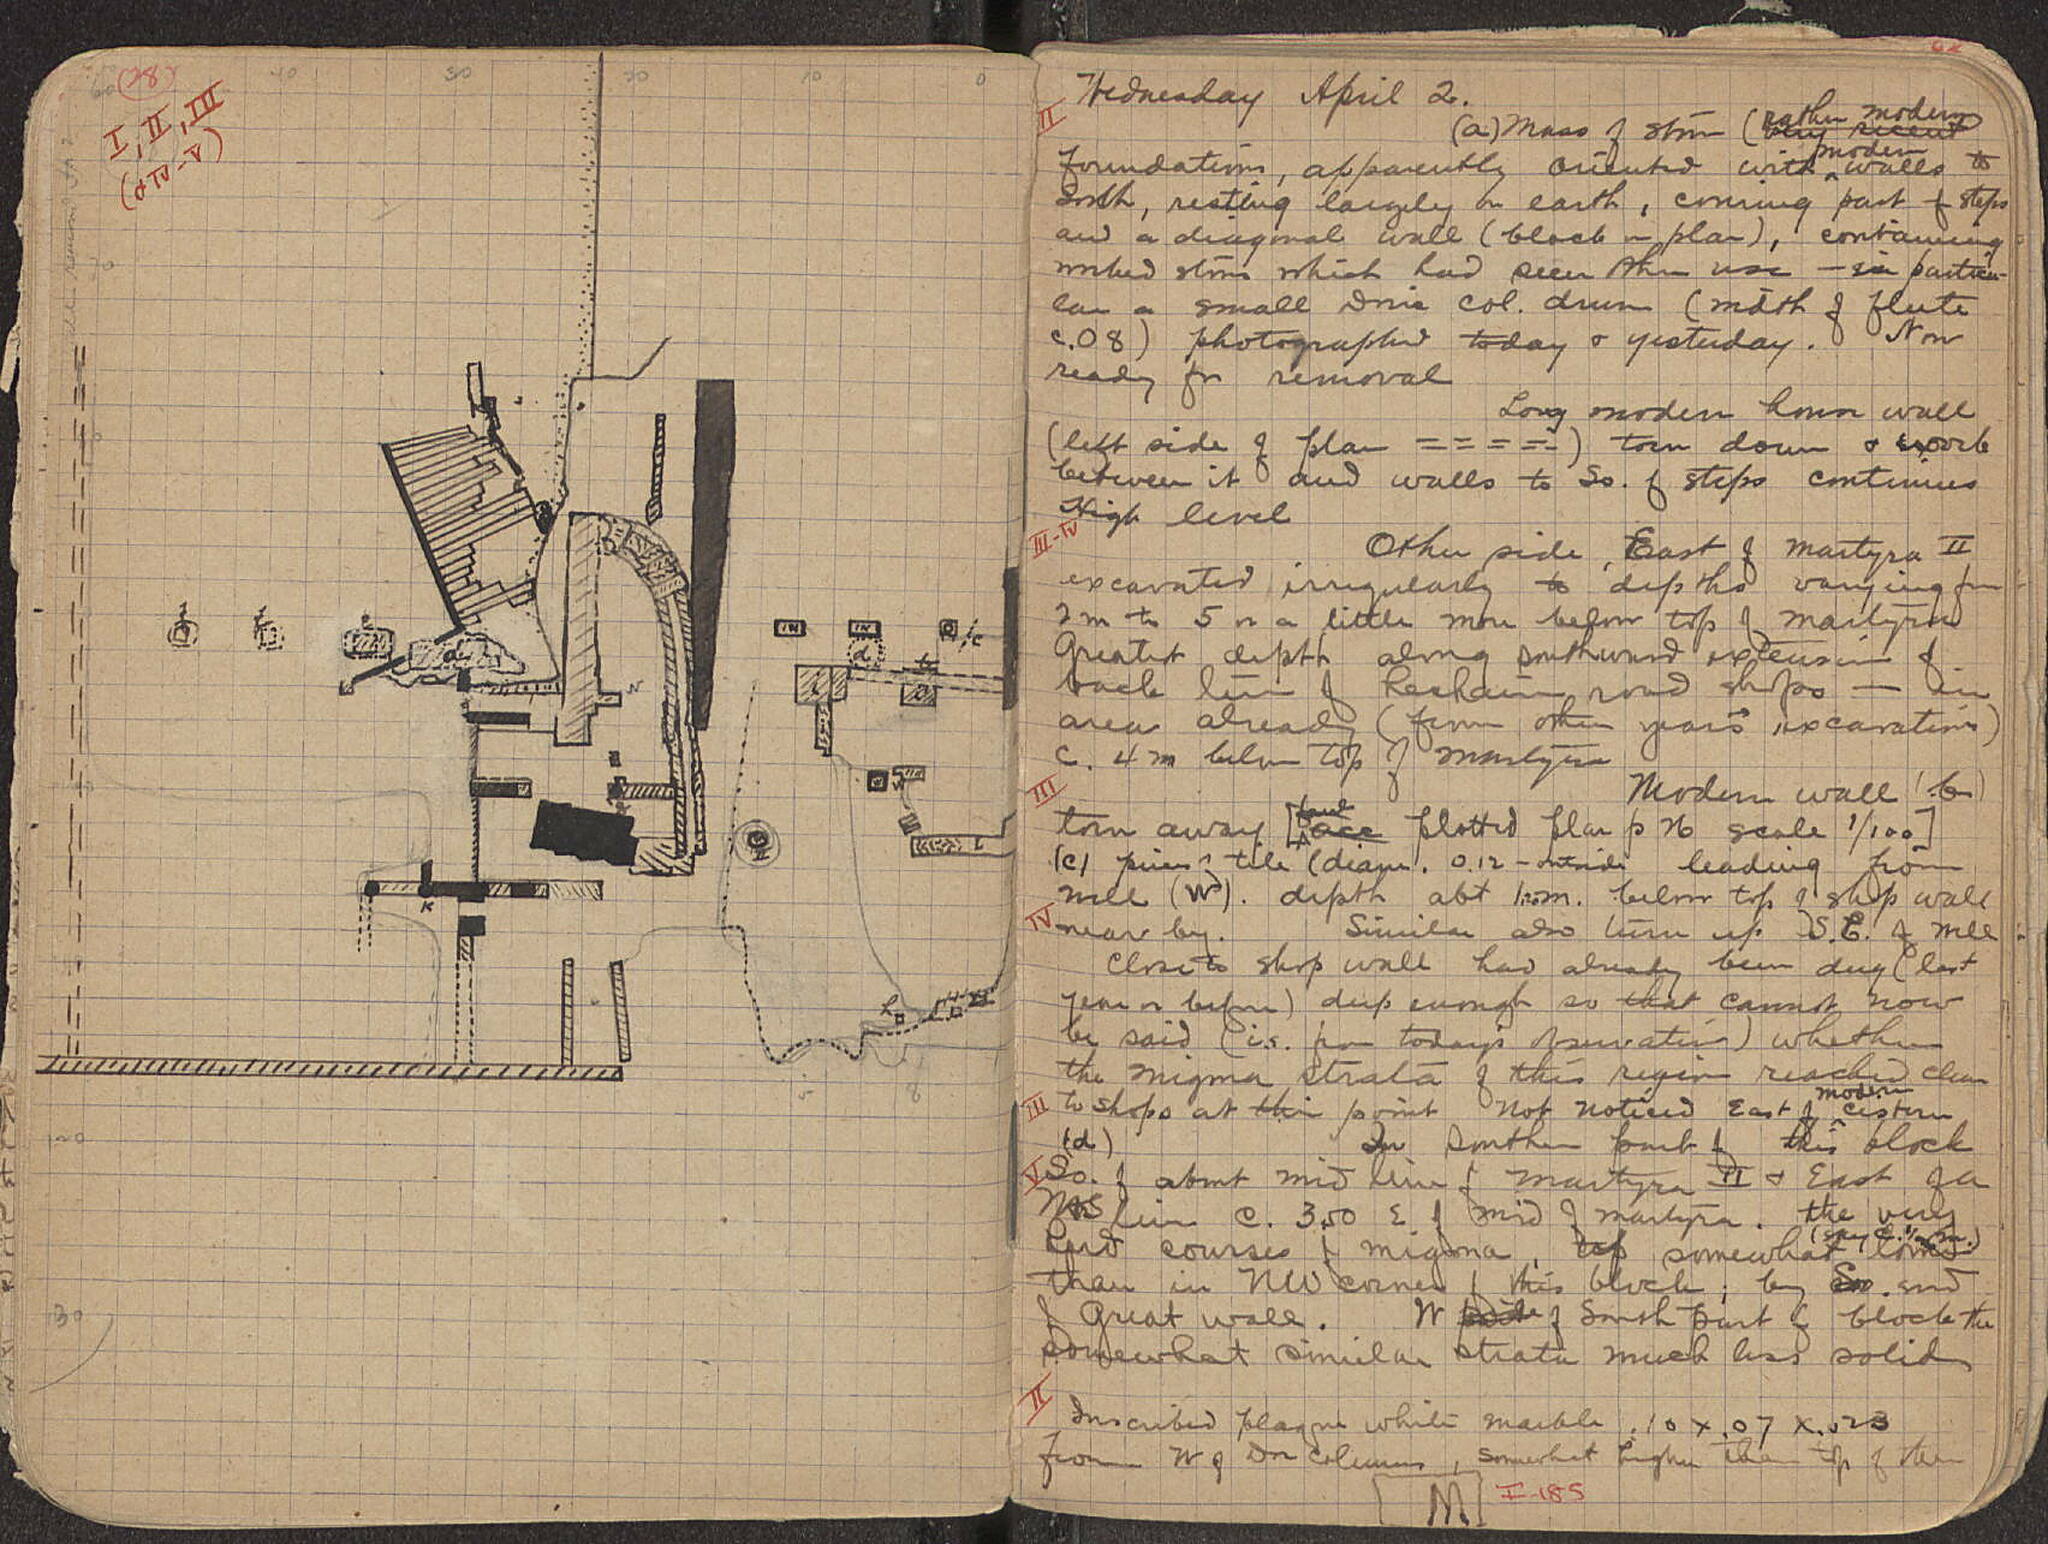 (28)
I, II, III
(& IV-V)
40 30 20 10 0
Wednesday April 2.
II (a) Mass of stone (rather modern
foundations, apparently oriented with modern walls to
South, resting largely on earth, covering part of steps
and a diagonal wall (black on plan), containing
worked stones which had seen other use — in particu-
lar a small Doric col. drum (width of flute
c. 08) photographed today & yesterday. Now
ready for removal
Long modern house wall
(left side of plan =====) torn down & work
between it and walls to So. of steps continues
High level
III-IV Other side, East of martyra II
excavated irregularly to depths varying from
2m to 5 or a little more below top of martyra
Greatest depth along southward extension of
back line of Lechaion road shops — in
area already (from other year's excavations)
c. 4m below top of martyra
III Modern wall (b)
torn away [ plotted plan p 26 scale 1/100]
(c) piece tile (diam. 0.12 - outside leading from
well (W). depth abt m. below top of shop wall
IV near by. Similar also turn up S.E. of well
Close to shop wall had already been dug (last
year or before) deep enough so that cannot now
be said (i.e. from today's observation) whether
the migma strata of this region reached clear
III to shops at this point Not noticed East of modern cistern
(d) In southern part of this block
V So. of about mid line of martyra II & East of a
NS line c. 3.50 E of mid of martyra. the very
hard courses of migma, top somewhat lower
than in NW corner of this block; by So. end
of Great wall. W side of South part of block the
somewhat similar strata much less solid
II Inscribed plaque white marble .10 x .07 x .023
from W of Dor columns, somewhat higher than top of them
[M] I-185